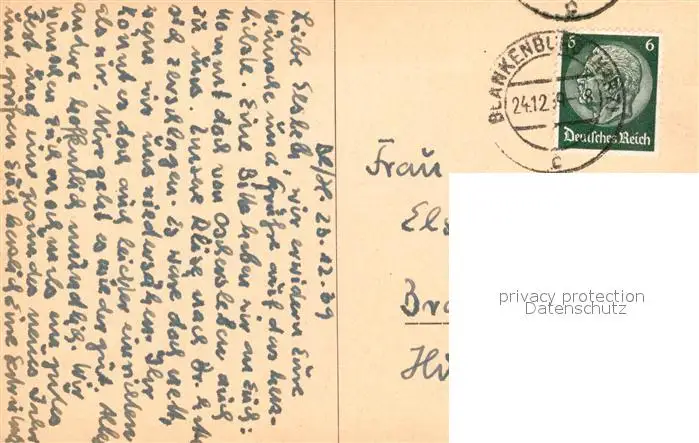 Bl/H. 23.12.39
Liebe Elsbeth, wir erwidern Eure
Wünsche und Grüße auf das herz-
lichste. Eine Bitte haben wir an Euch:
kommt doch von Oschersleben auch
zu uns. Unsere Pläne nach Br.
sich zerschlagen. Es wäre doch nett,
wenn wir uns wiedersähen. Ihr
könnt es doch auch leichter einrichten
als wir. Mir geht es wieder gut. Alles
andere hoffentlich mündlich. Wir
wünschen Euch nochmals ein gutes
Fest und ein gesundes neues Jahr
und grüßen Euch herzlich Eure
BLANKENBURG
24.12.39
6 6
Deutsches Reich
c
c
Frau
Els
Bra
privacy protection
Datenschutz